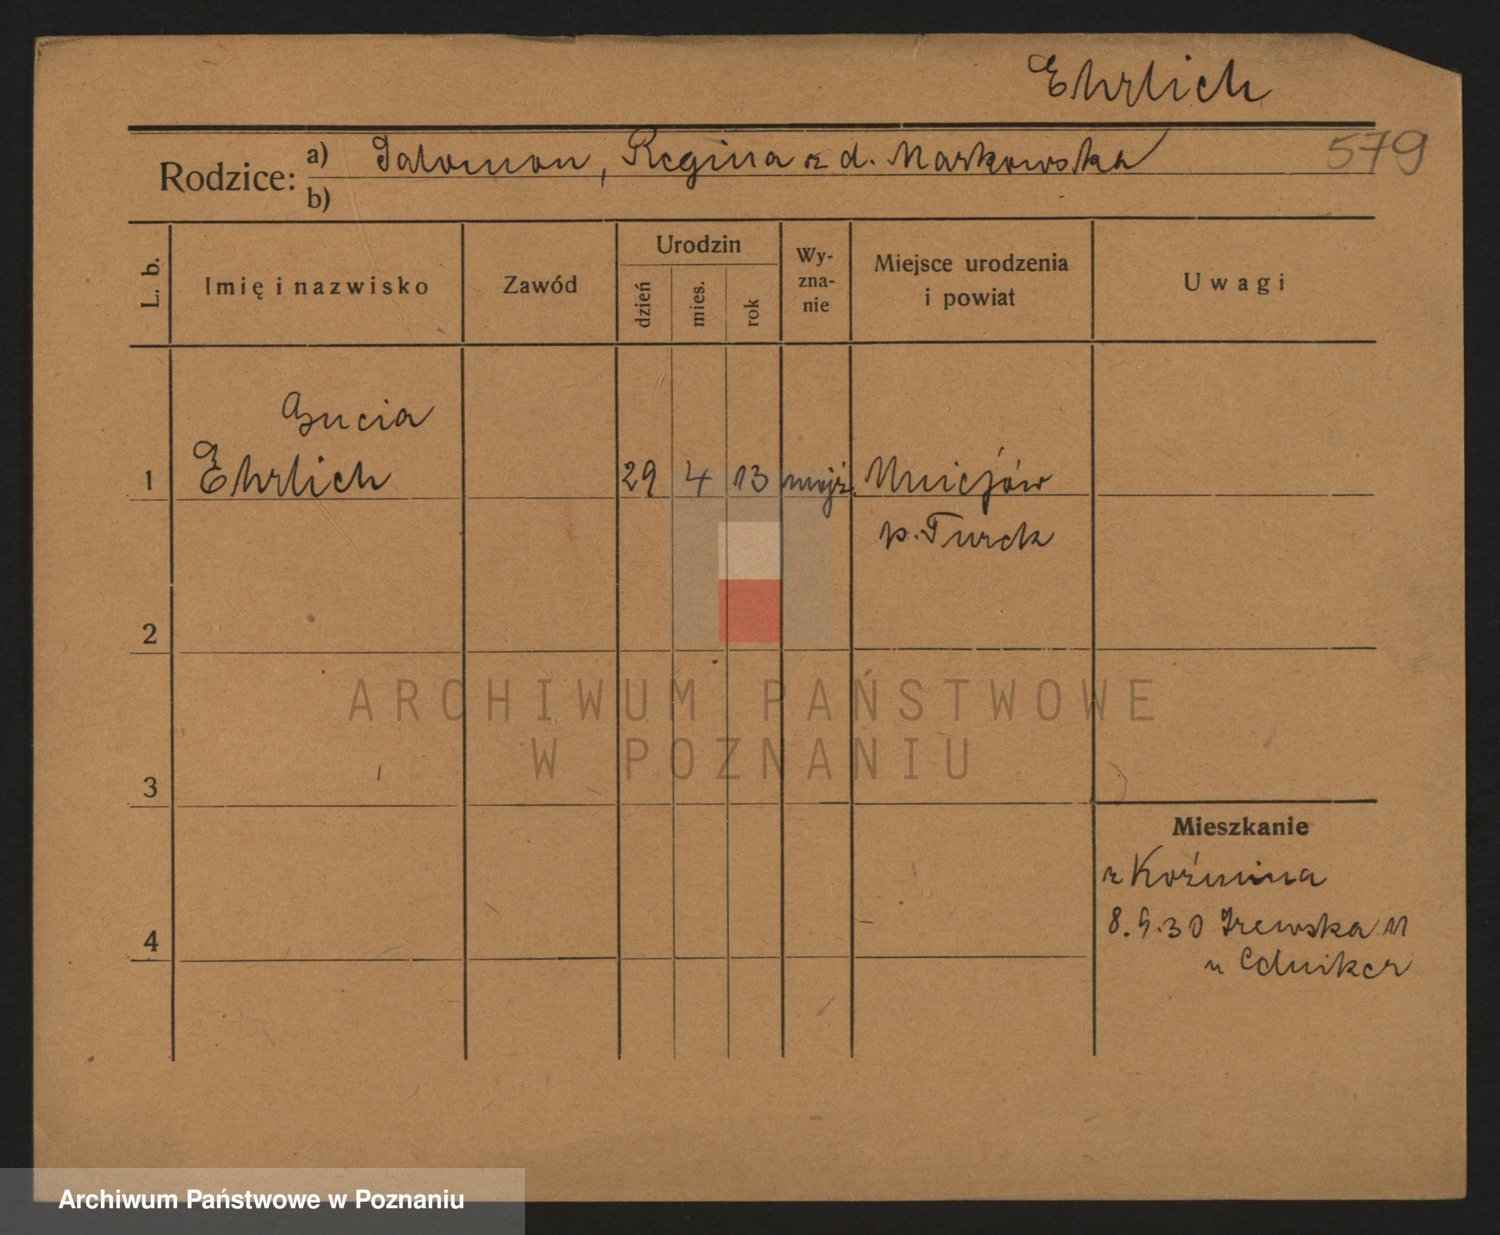 Ehrlich
579
Rodzice: a) Salomon, Regina z d. Markowska
b)
L. b.
Imię i nazwisko
Zawód
Urodzin
dzień
mies.
rok
Wy-
zna-
nie
Miejsce urodzenia
i powiat
Uwagi
Gucia
1 Ehrlich 29 4 13 mojż. Uniejów
p. Turek
2
3
4
Mieszkanie
z Koźmina
8.9.30
u
ARCHIWUM PAŃSTWOWE
W POZNANIU
Archiwum Państwowe w Poznaniu